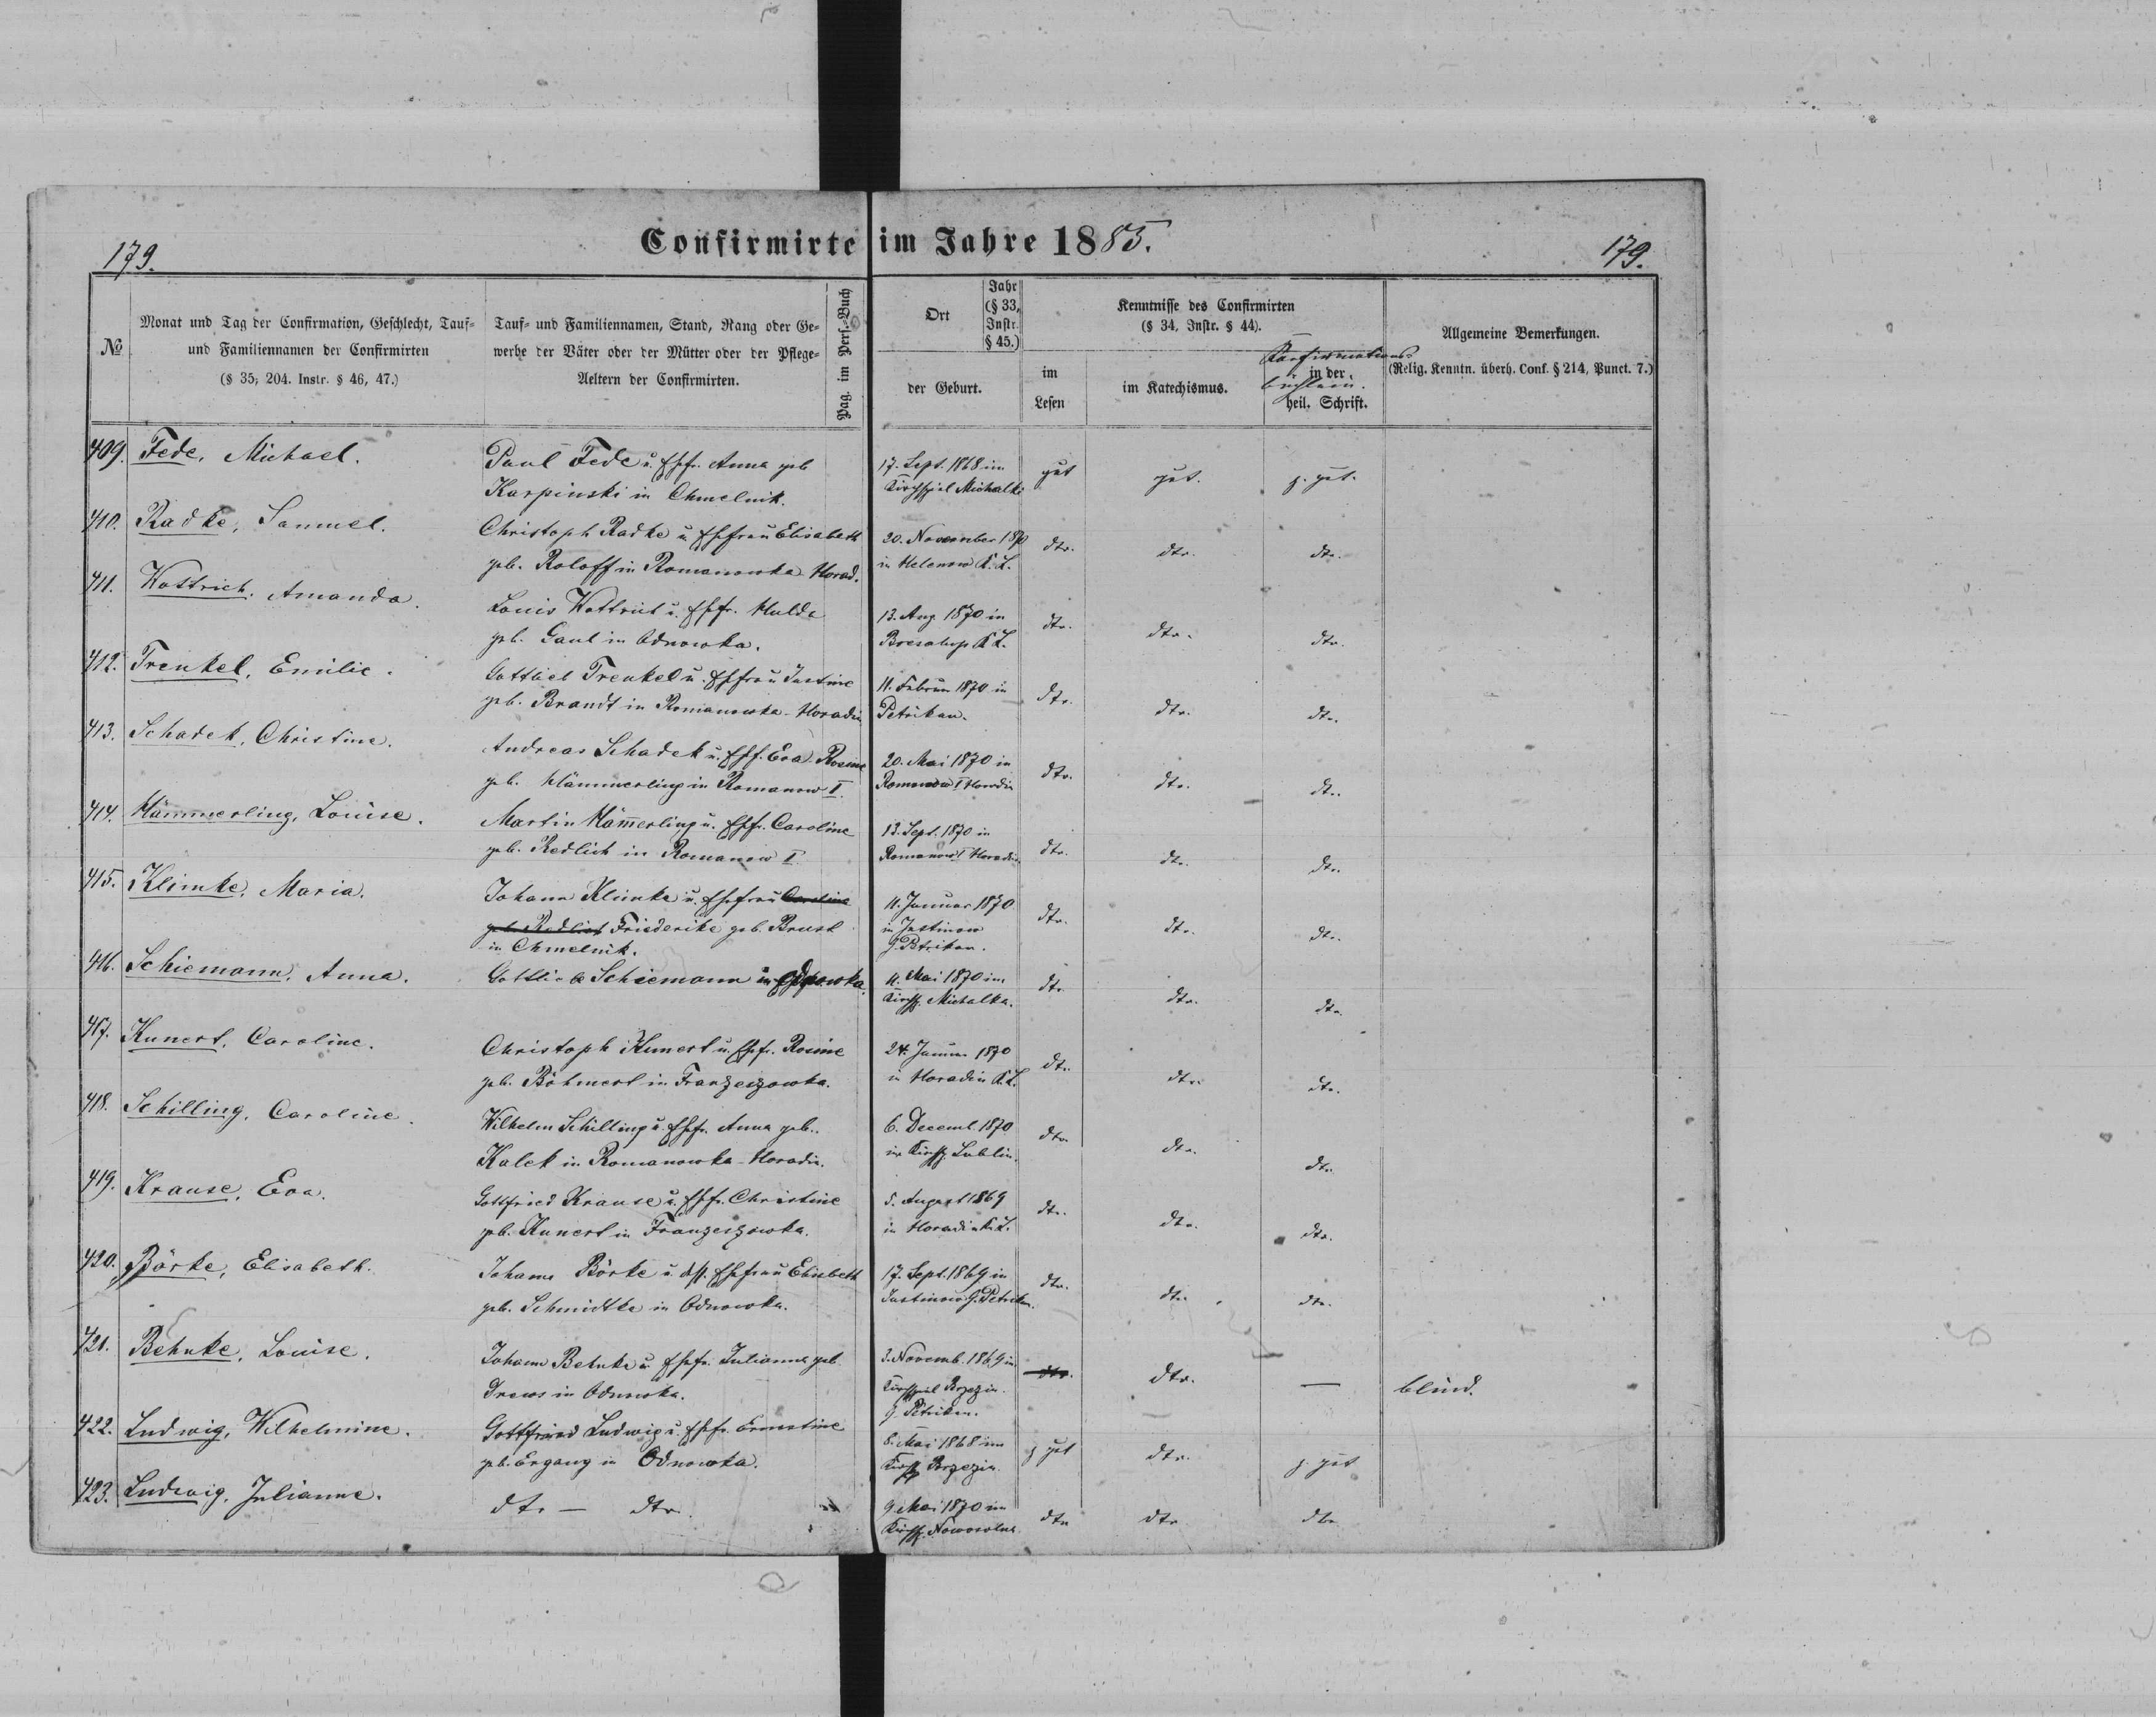 Confirmirte im Jahre 1885.
179.
179.
№
Monat und Tag der Confirmation, Geschlecht, Tauf-
und Familiennamen der Confirmirten
(§ 35; 204. Instr. § 46, 47.)
Tauf- und Familiennamen, Stand, Rang oder Ge-
werbe der Väter oder der Mütter oder der Pflege-
Aeltern der Confirmirten.
Pag. im Pers.-Buch
Ort
Jahr
(§ 33,
Instr.
§ 45.)
der Geburt.
Kenntnisse des Confirmirten
(§ 34, Instr. § 44).
im
Lesen
im Katechismus.
Konfirmations-
in der
büchlein.
heil. Schrift.
Allgemeine Bemerkungen.
(Relig. Kenntn. überh. Conf. § 214, Punct. 7.)
409. Fede, Michael.
Paul Fede u. Ehfr. Anna geb
Karpinski in Chmelnik.
17. Sept. 1868 im
Kirchspiel Michalki
gut
gut.
z. gut.
410. Radke, Samuel.
Christoph Radke u Ehefrau Elisabeth
geb. Roloff in Romanowka Horad.
20. November 1870
in Helenow K. L.
dto.
dto.
dto.
411. Wottrich. Amanda.
Louis Wottrich u. Ehfr. Hulda
geb. Gaul in Odnowka.
13. Aug 1870 in
K. L.
dto.
dto.
dto.
412. Trenkel, Emilie.
Gottlieb Trenkel u. Ehefrau Justine
geb. Brandt in Romanowka-Horadin
11. Februar 1870 in
Petrikau.
dto.
dto.
dto.
413. Schadek, Christine.
Andreas Schadek u. Ehf. Eva Rosine
geb. Hämmerling in Romanow II.
20. Mai 1870 in
Romanow I Horodin
dto.
dto.
dto.
414. Hämmerling, Louise.
Martin Hämerling u. Ehfr. Caroline
geb. Redlich in Romanow I
13. Sept. 1870 in
Romanow I Horadin
dto.
dto.
dto.
415. Klimke, Maria.
Johann Klimke u. Ehefrau Caroline
geb. Redlich Friederike geb. Brust
in Chmelnik.
11. Januar 1870
in Justinow
G. Petrikau.
dto.
dto.
dto.
416. Schiemann, Anna.
Gottlieb Schiemann in Odnowka.
11. Mai 1870 im
Kirchsp. Michalka.
dto.
dto.
dto.
417. Kunert, Caroline.
Christoph Kunert u. Ehfr. Rosine
geb. Böhmert in Franzeszowka.
24. Januar 1870
in Horadin K. L.
dto.
dto.
dto.
418. Schilling, Caroline.
Wilhelm Schilling u. Ehfr. Anna geb.
Kalek in Romanowka-Horadin.
6. Decemb. 1870
im Kirchsp. Lublin.
dto.
dto.
dto.
419. Krause, Eva.
Gottfried Krause u. Ehfr. Christine
geb. Kunert in Franzeszowka.
5. August 1869
in Horadin K. L.
dto.
dto.
dto.
420. Börke, Elisabeth.
Johann Börke u. dss. Ehefrau Elisbeth
geb. Schmidtke in Odnowka.
17. Sept. 1869 in
Justinow G. Petrikau.
dto.
dto.
dto.
421. Behnke, Louise.
Johann Behnke u Ehefr. Julianna geb.
Drews in Odnowka.
3. Novemb. 1869 im
Kirchspiel Brzezin
G. Petrikau.
dto.
dto.
—
blind.
422. Ludwig, Wilhelmine.
Gottfried Ludwig u. Ehfr. Ernestine
geb. Ergang in Odnowka.
8. Mai 1868 im
Kirchsp Brzezin
z gut
dto.
z. gut
423. Ludwig, Julianne.
dto — dto.
9. Mai 1870 im
Kirchsp. Nowosolna
dto
dto
dto